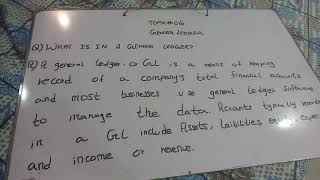 TOPIC#06
GENERAL LEDGER
Q) WHAT IS IN A GENERAL LEDGER?
A) A general Ledger or GL is a means of keeping
record of a company's total financial accounts
and most businesses use general ledger software
to manage the data. Accounts typically recorded
in a GL include Assets, laibilities equity, expens
and income or revenue.